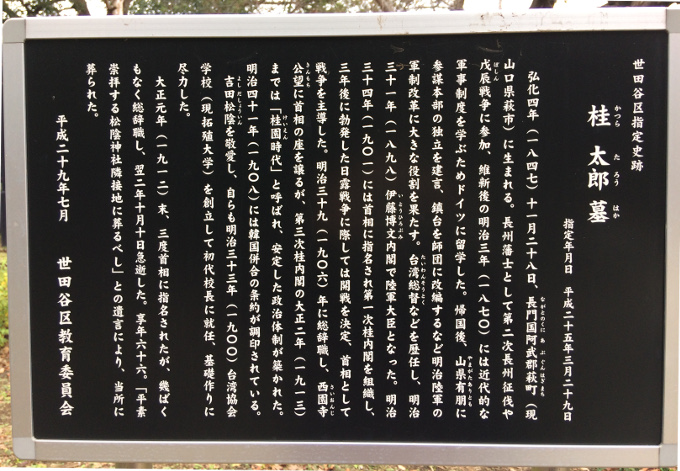 世田谷区指定史跡
桂 太郎 墓
かつら たろう はか
指定年月日 平成二十五年三月二十九日
弘化四年(一八四七)十一月二十八日、長門国阿武郡萩町(現
ながとのくに あぶぐんはぎまち
山口県萩市)に生まれる。長州藩士として第二次長州征伐や
戊辰戦争に参加、維新後の明治三年(一八七〇)には近代的な
ぼしん
軍事制度を学ぶためドイツに留学した。帰国後、山県有朋に
やまがたありとも
参謀本部の独立を建言、鎮台を師団に改編するなど明治陸軍の
軍制改革に大きな役割を果たす。台湾総督などを歴任し、明治
たいわんそうとく
三十一年(一八九八)伊藤博文内閣で陸軍大臣となった。明治
いとうひろぶみ
三十四年(一九〇一)には首相に指名され第一次桂内閣を組織し、
三年後に勃発した日露戦争に際しては開戦を決定、首相として
戦争を主導した。明治三十九(一九〇六)年に総辞職し、西園寺
さいおんじ
公望に首相の座を譲るが、第三次桂内閣の大正二年(一九一三)
きんもち
までは「桂園時代」と呼ばれ、安定した政治体制が築かれた。
けいえん
明治四十一年(一九〇八)には韓国併合の条約が調印されている。
吉田松陰を敬愛し、自らも明治三十三年(一九〇〇)台湾協会
よしだしょういん
学校(現拓殖大学)を創立して初代校長に就任、基礎作りに
尽力した。
大正元年(一九一二)末、三度首相に指名されたが、幾ばく
もなく総辞職し、翌二年十月十日急逝した。享年六十六。「平素
崇拝する松陰神社隣接地に葬るべし」との遺言により、当所に
葬られた。
平成二十九年七月 世田谷区教育委員会